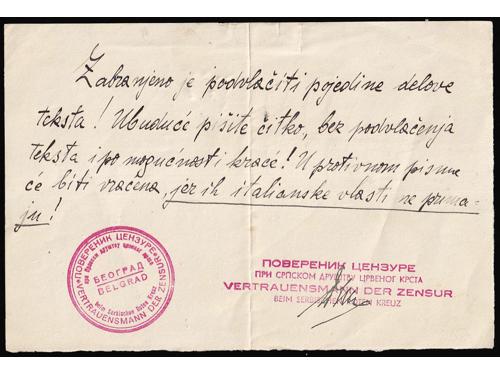 Zabranjeno je podvlačiti pojedine delove
teksta! Ubuduće pišite čitko, bez podvlačenja
teksta i po mogućnosti kraće! U protivnom pisma
će biti vraćena, jer ih italianske vlasti ne prima-
ju!
ПОВЕРЕНИК ЦЕНЗУРЕ
при Српском друштву црвеног крста
БЕОГРАД
BELGRAD
beim Serbischen Roten Kreuz
VERTRAUENSMANN DER ZENSUR
ПОВЕРЕНИК ЦЕНЗУРЕ
ПРИ СРПСКОМ ДРУШТВУ ЦРВЕНОГ КРСТА
VERTRAUENSMANN DER ZENSUR
BEIM SERBISCHEN ROTEN KREUZ